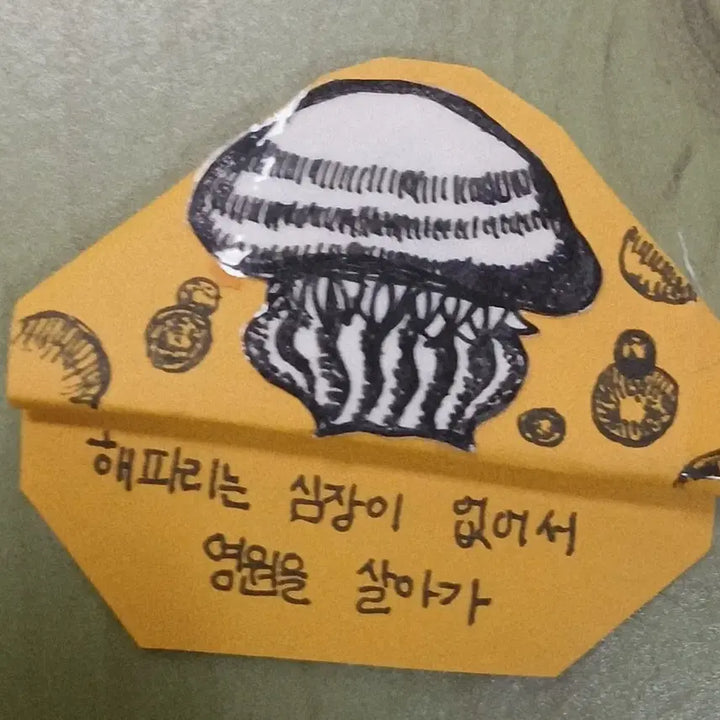 해파리는 심장이 없어서
영원을 살아가